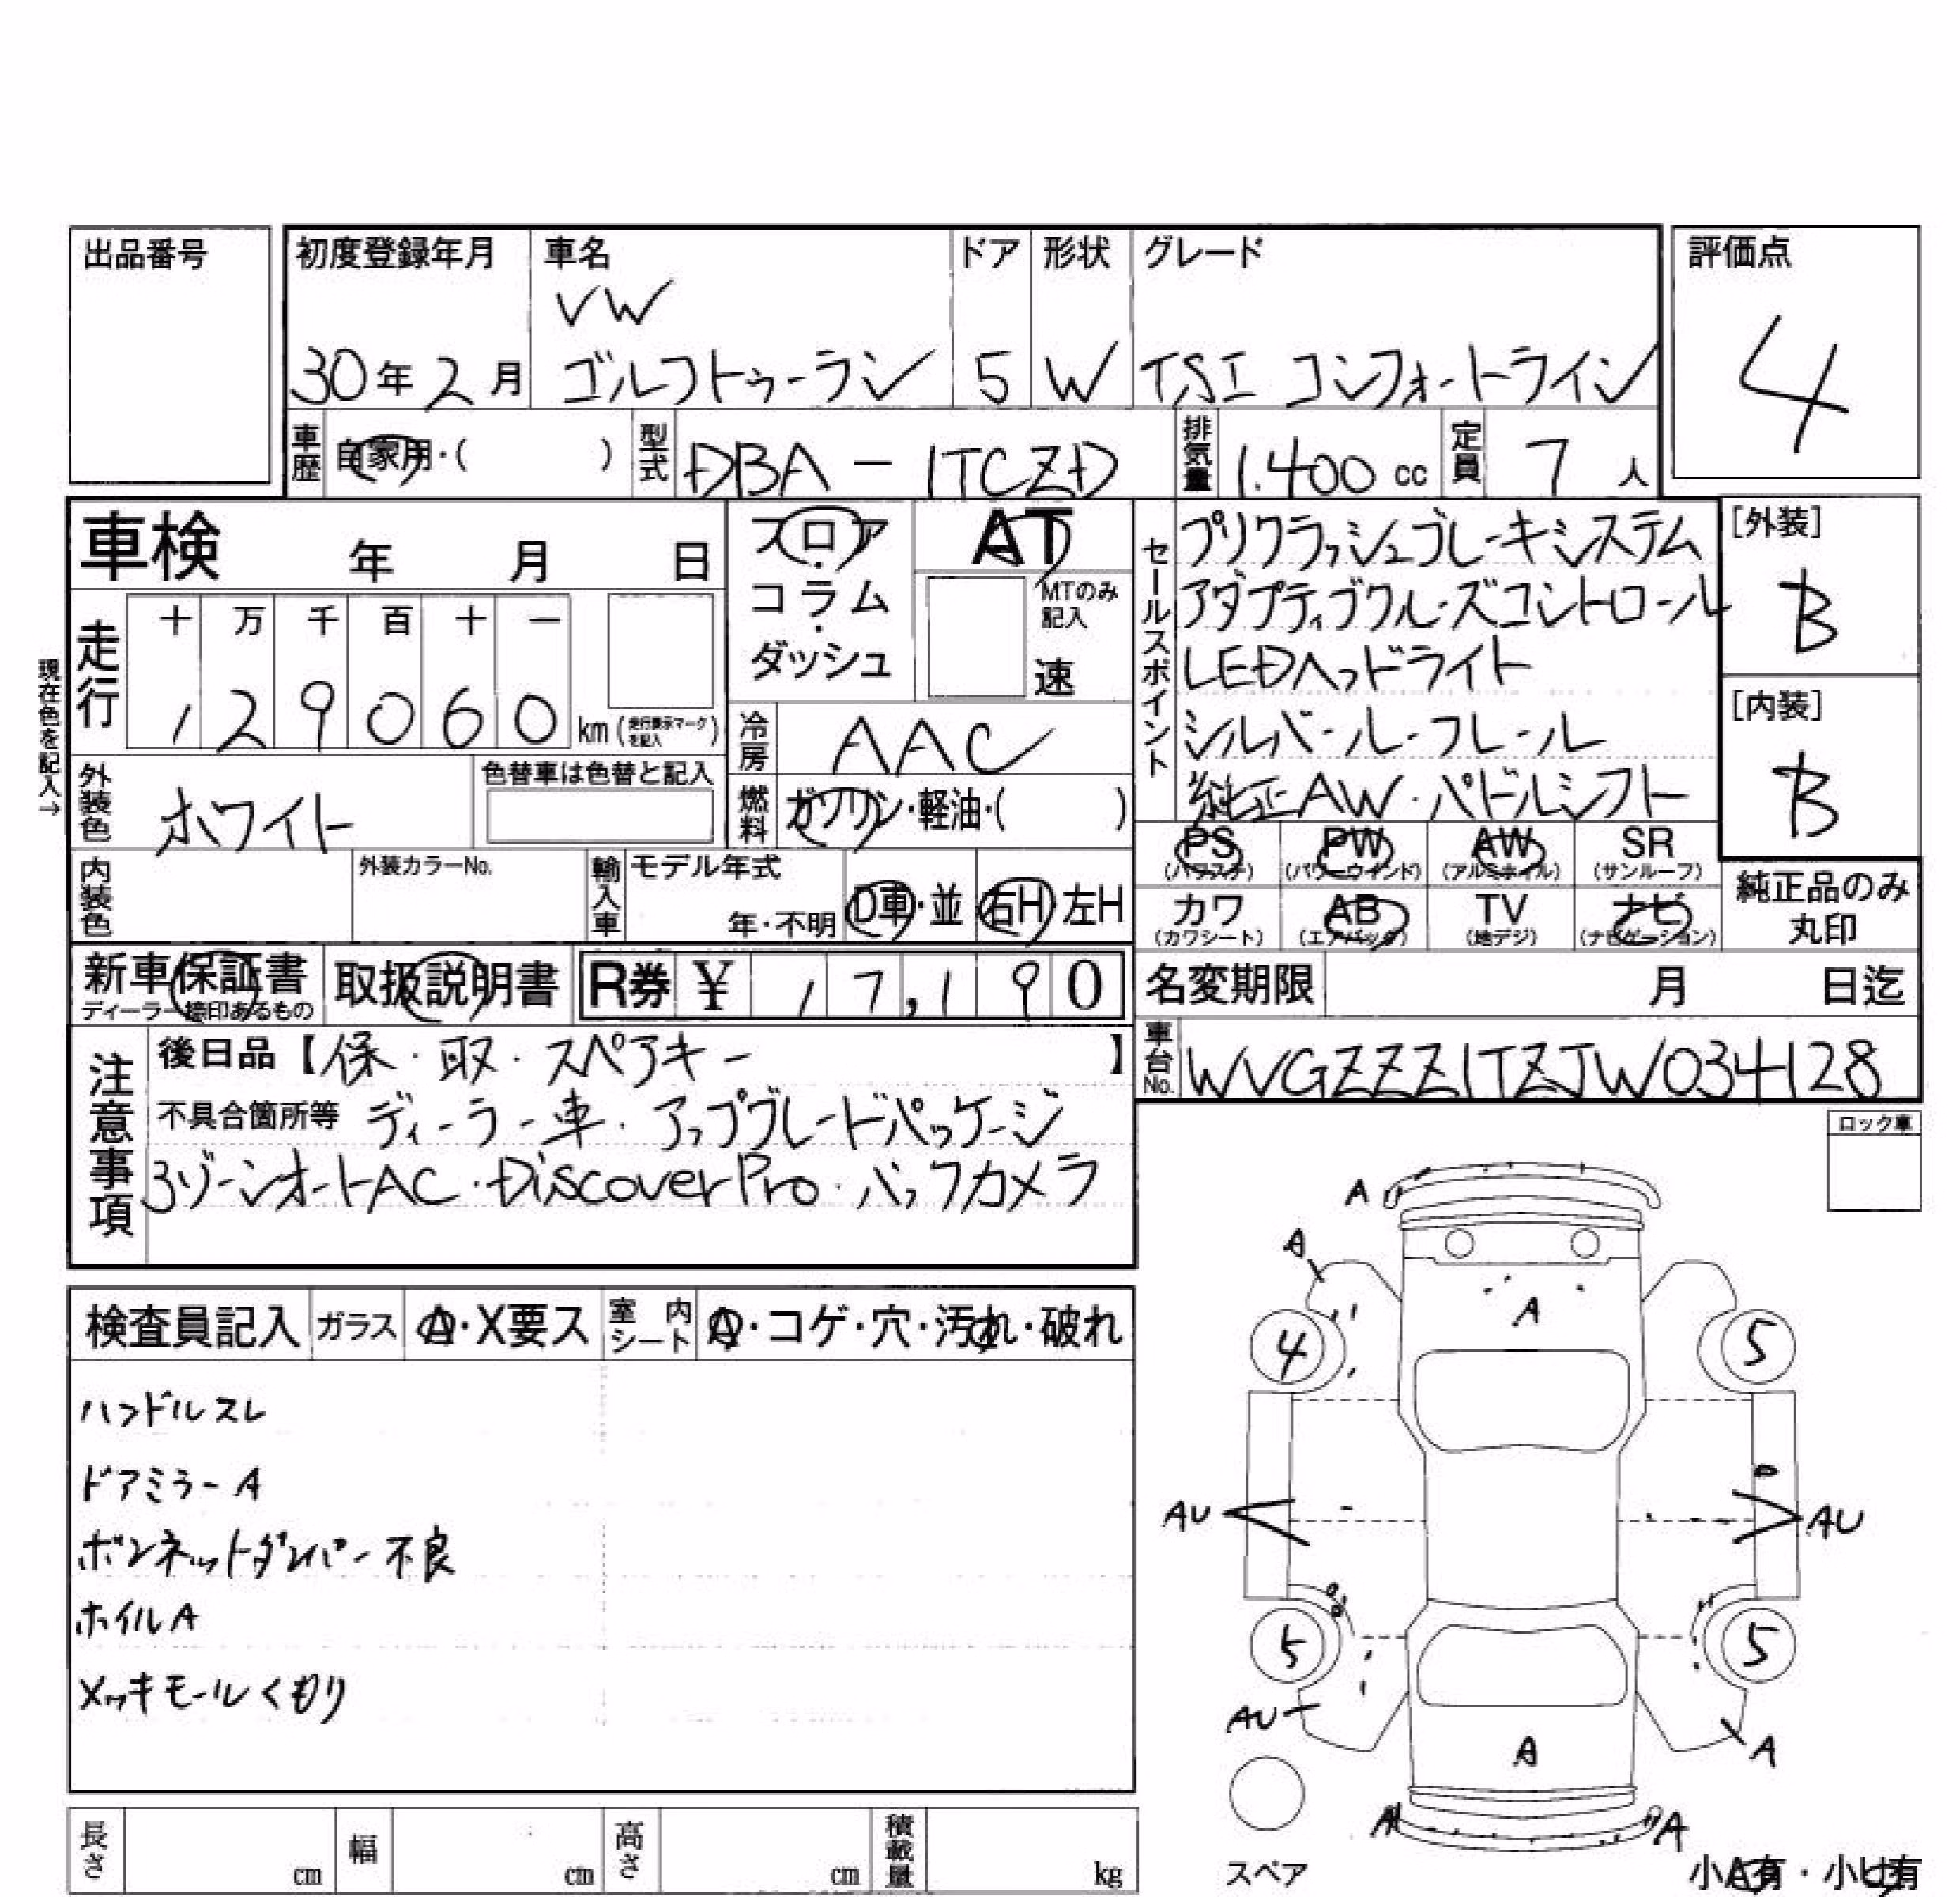 出品番号
初度登録年月 車名 ドア 形状 グレード 評価点
VW
30年2月 ゴルフトゥーラン 5 W TSI コンフォートライン 4
車歴 自家用・( ) 型式 DBA - 1TCZD 排気量 1.400 cc 定員 7 人
車検 年 月 日
フロア・コラム・ダッシュ
AT
MTのみ記入
速
セールスポイント
プリクラッシュブレーキシステム
アダプティブクルーズコントロール
LEDヘッドライト
シルバールーフレール
純正AW・パドルシフト
[外装]
B
[内装]
B
走行 十 万 千 百 十 一
1 2 9 0 6 0 km (走行表示マークを記入)
現在色を記入→
冷房 AAC
外装色 ホワイト 色替車は色替と記入
燃料 ガソリン・軽油・( )
内装色 外装カラーNo. 輸入車 モデル年式 年・不明 D車・並 右H 左H
PS (パワステ) PW (パワーウインド) AW (アルミホイル) SR (サンルーフ)
カワ (カワシート) AB (エアバッグ) TV (地デジ) ナビ (ナビゲーション)
純正品のみ丸印
新車保証書 ディーラー捺印あるもの 取扱説明書 R券 ¥ 17,190
名変期限 月 日迄
車台No. WVGZZZ1TZJW034128
注意事項
後日品【保・取・スペアキー 】
不具合箇所等 ディーラー車・アップグレードパッケージ
3ゾーンオートAC・DiscoverPro・バックカメラ
ロック車
検査員記入 ガラス A・X要ス 室内シート A・コゲ・穴・汚れ・破れ
ハンドルスレ
ドアミラーA
ボンネットダンパー不良
ホイルA
メッキモールくもり
A
A
A
4 5
AU AU
5 5
AU A
A
A A
スペア
小A有・小U有
長さ cm 幅 cm 高さ cm 積載量 kg